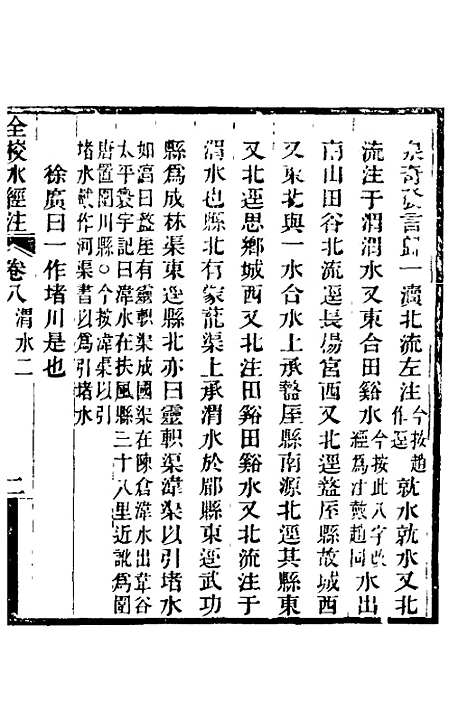 泉奇發言歸一瀆北流左注今按趙作逕就水就水又北
流注于渭渭水又東合田谿水今按此八字改經爲注戴趙同水出
南山田谷北流逕長楊宮西又北逕盩厔縣故城西
又東北與一水合水上承盩厔縣南源北逕其縣東
又北逕思鄉城西又北注田谿田谿水又北流注于
渭水也縣北有蒙蘢渠上承渭水於郿縣東逕武功
縣爲成林渠東逕縣北亦曰靈軹渠漳渠以引堵水
如淳曰盩厔有靈軹渠成國渠在陳倉漳水出韋谷
太平寰宇記曰漳水在扶風縣三十八里近訛爲圍
唐置圍川縣○今按漳渠各本作以引
堵水戴作河渠書以爲引堵水
徐廣曰一作堵川是也
全校水經注
卷八 渭水二
二